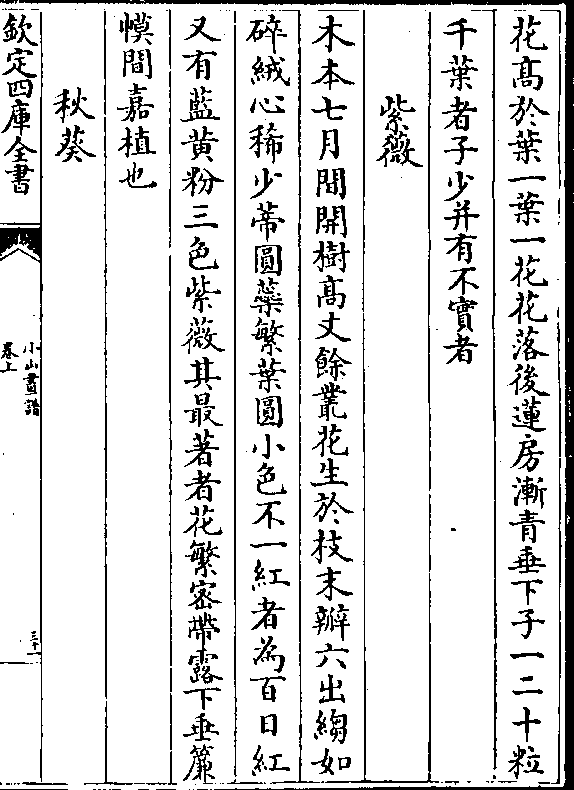 花髙於葉一葉一花花落後蓮房漸青垂下子一二十粒
千葉者子少并有不實者
紫薇
木本七月間開樹髙丈餘叢花生於枝末瓣六出縐如
碎絨心稀少蒂圓蘂繁葉圓小色不一紅者為百日紅
又有藍黄粉三色紫薇其最著者花繁密帶露下垂簾
幙間嘉植也
秋葵
欽定四庫全書
小山畫譜
卷上
三十一